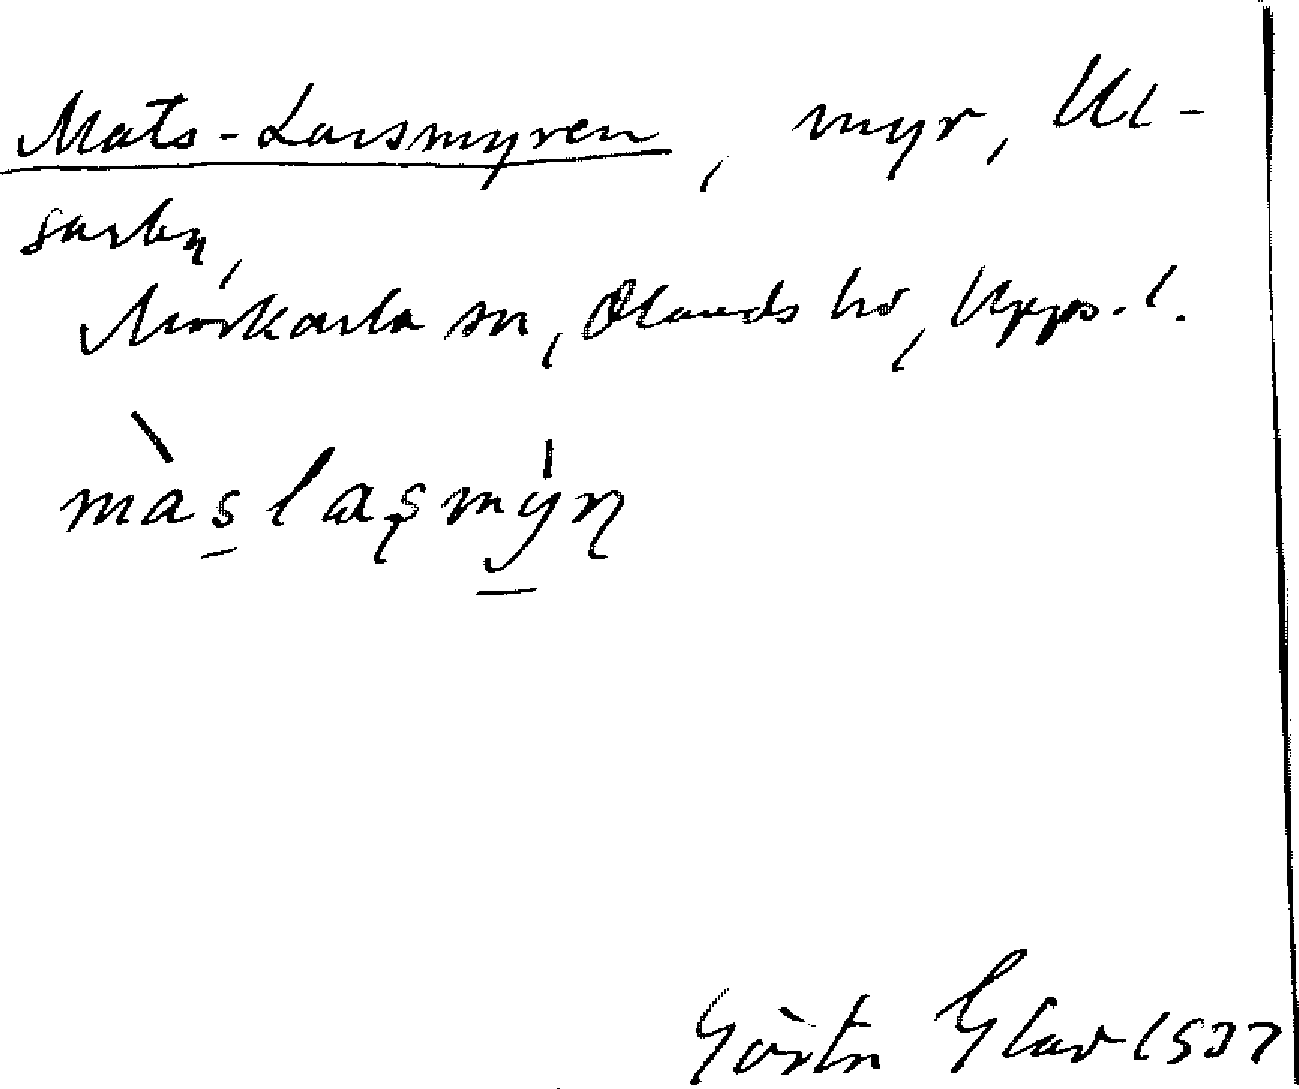 Mats-Larsmyren, myr, Ul-
sarby,
Morkarla sn, Olands hd, Upps. l.
màslaşmýn
Gösta Glav 1937